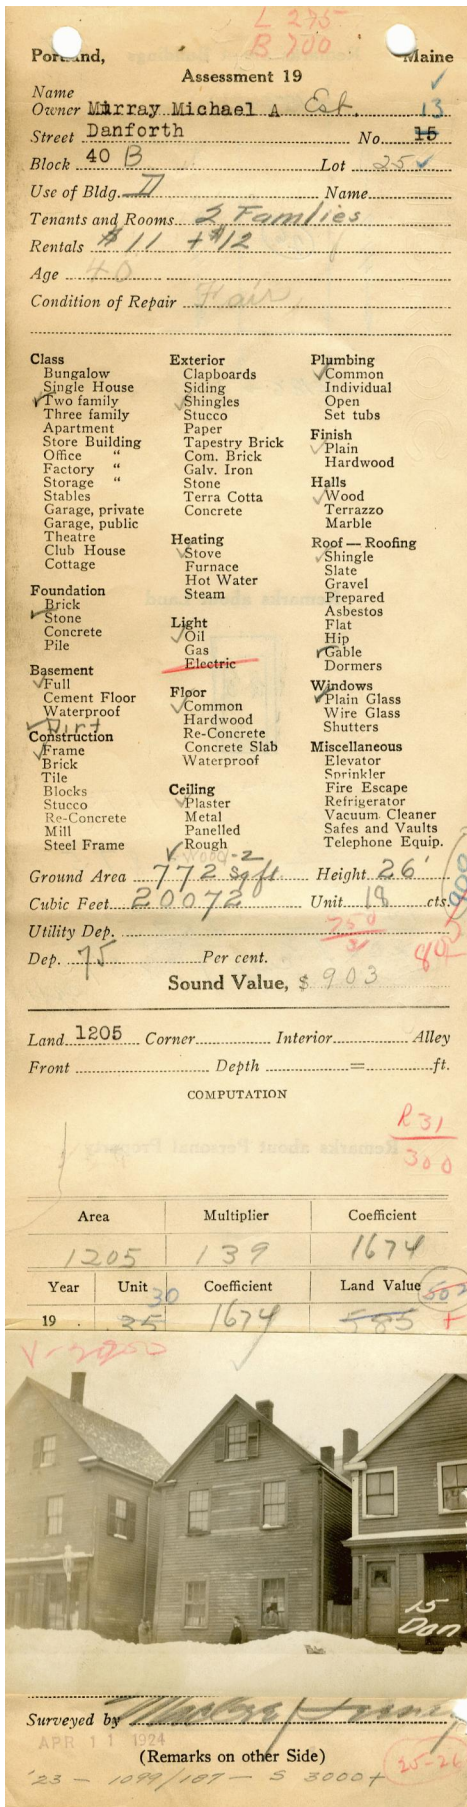 L 275
B 700
Portland, Maine
Assessment 19
Name
Owner Murray Michael A Est.
13
Street Danforth No. 15
Block 40 B Lot 25
Use of Bldg. D Name
Tenants and Rooms 2 Families
Rentals $11 + $12
Age 40
Condition of Repair Fair
Class
Bungalow
Single House
Two family
Three family
Apartment
Store Building
Office "
Factory "
Storage "
Stables
Garage, private
Garage, public
Theatre
Club House
Cottage
Foundation
Brick
Stone
Concrete
Pile
Basement
Full
Cement Floor
Waterproof
Dirt
Construction
Frame
Brick
Tile
Blocks
Stucco
Re-Concrete
Mill
Steel Frame
Exterior
Clapboards
Siding
Shingles
Stucco
Paper
Tapestry Brick
Com. Brick
Galv. Iron
Stone
Terra Cotta
Concrete
Heating
Stove
Furnace
Hot Water
Steam
Light
Oil
Gas
Electric
Floor
Common
Hardwood
Re-Concrete
Concrete Slab
Waterproof
Ceiling
Plaster
Metal
Panelled
Rough
Wood-2
Plumbing
Common
Individual
Open
Set tubs
Finish
Plain
Hardwood
Halls
Wood
Terrazzo
Marble
Roof — Roofing
Shingle
Slate
Gravel
Prepared
Asbestos
Flat
Hip
Gable
Dormers
Windows
Plain Glass
Wire Glass
Shutters
Miscellaneous
Elevator
Sprinkler
Fire Escape
Refrigerator
Vacuum Cleaner
Safes and Vaults
Telephone Equip.
Ground Area 772 sq ft. Height 26'
Cubic Feet 20072 Unit 18 cts.
900
Utility Dep. 750
31
Dep. 75 Per cent.
Sound Value, $ 903
Land 1205 Corner Interior Alley
Front Depth = ft.
COMPUTATION
R 31
300
Area Multiplier Coefficient
1205 139 1674
Year Unit Coefficient Land Value 502
30
19 35 1674 585 +
15
Dan
Surveyed by
APR 11 1924
(Remarks on other Side)
25-26
'23 - 1099/187 - S 3000+